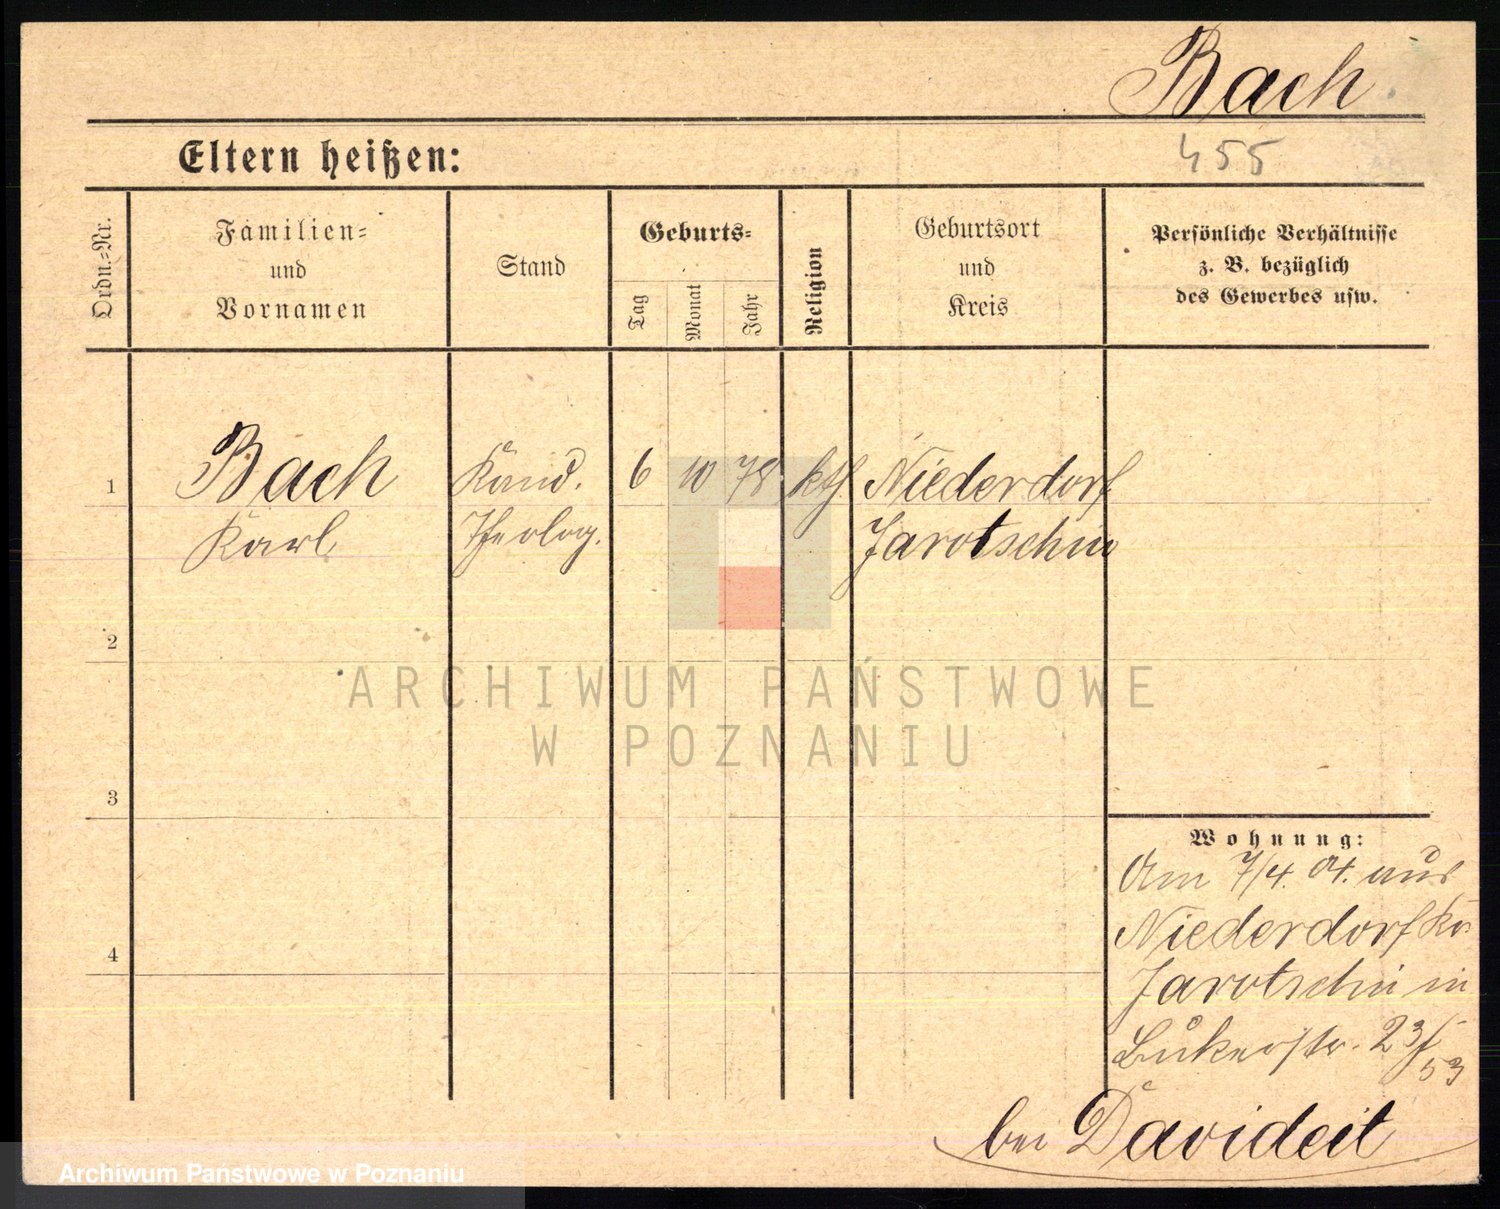 Bach
455
Eltern heißen:
Ordn.-Nr.
Familien-
und
Vornamen
Stand
Geburts-
Tag
Monat
Jahr
Religion
Geburtsort
und
Kreis
Persönliche Verhältnisse
z. B. bezüglich
des Gewerbes usw.
1
Bach
Karl
Kand.
Theolog.
6 10 78
kth
Niederdorf
Jarotschin
2
3
4
ARCHIWUM PAŃSTWOWE
W POZNANIU
Wohnung:
Am 7/4. 04. aus
Niederdorf Kr.
Jarotschin in
Bukerstr. 23/
53
bei Davideit
Archiwum Państwowe w Poznaniu